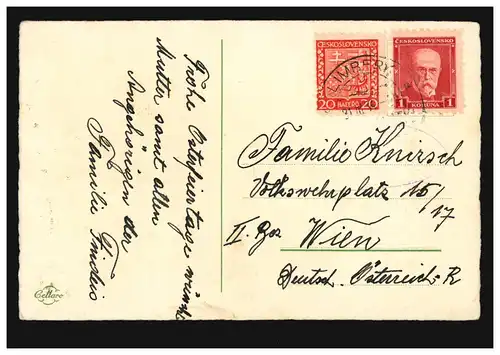 Frohe Osterfeiertage wünscht
Mutter samt allen
Angehörigen der
Familie
ČESKOSLOVENSKO
20 HALÉŘŮ 20
ČESKOSLOVENSKO
1 KORUNA 1
Familie Knirsch
Volkswehrplatz 16/17
II. Bez Wien
Deutsch-Österreich-R
Cellaro